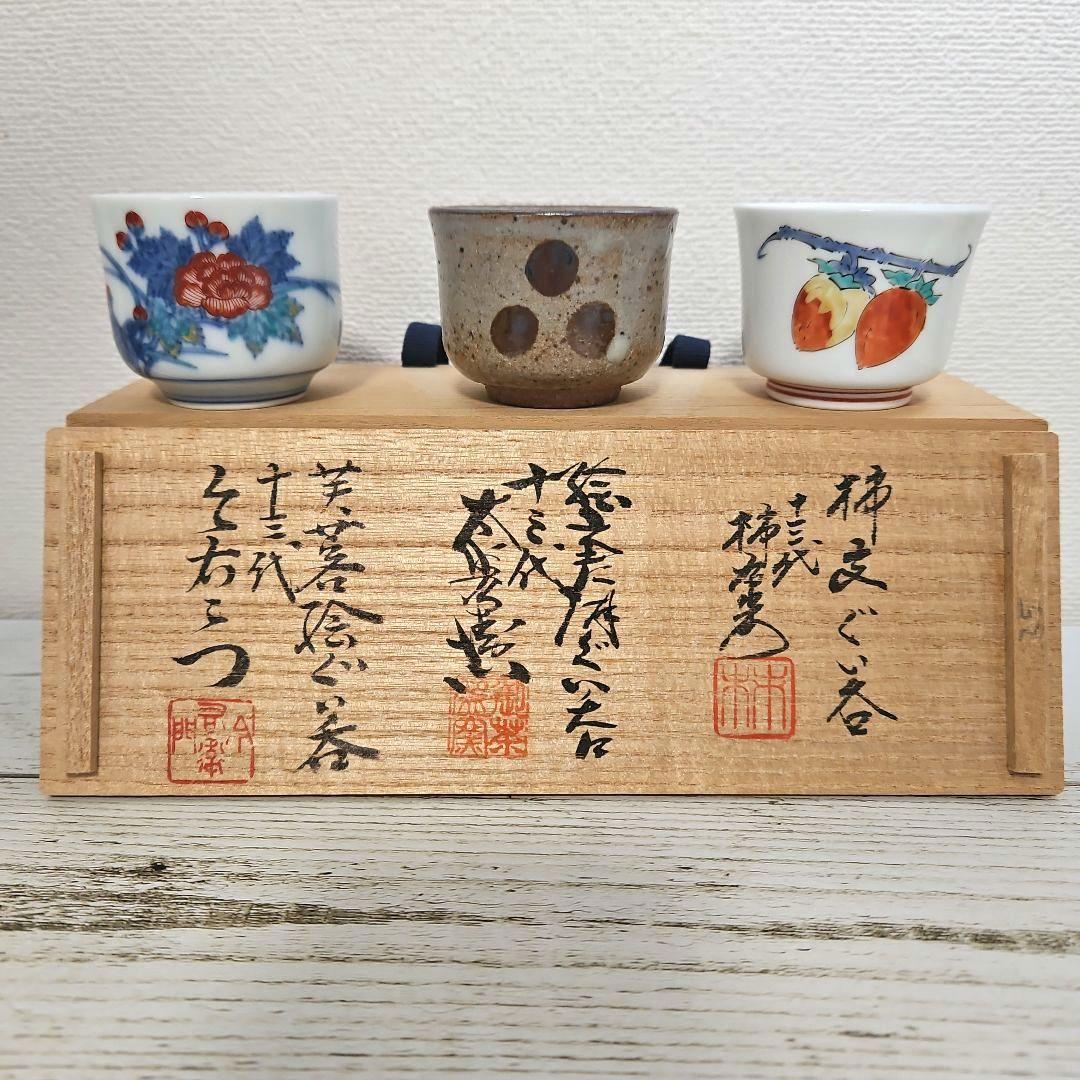 柿文ぐい呑
十三代
柿右衛門
林
絵唐津ぐい呑
十三代
太郎右衛門
芙蓉絵ぐい呑
十三代
今右ヱ門
今右衛門
25